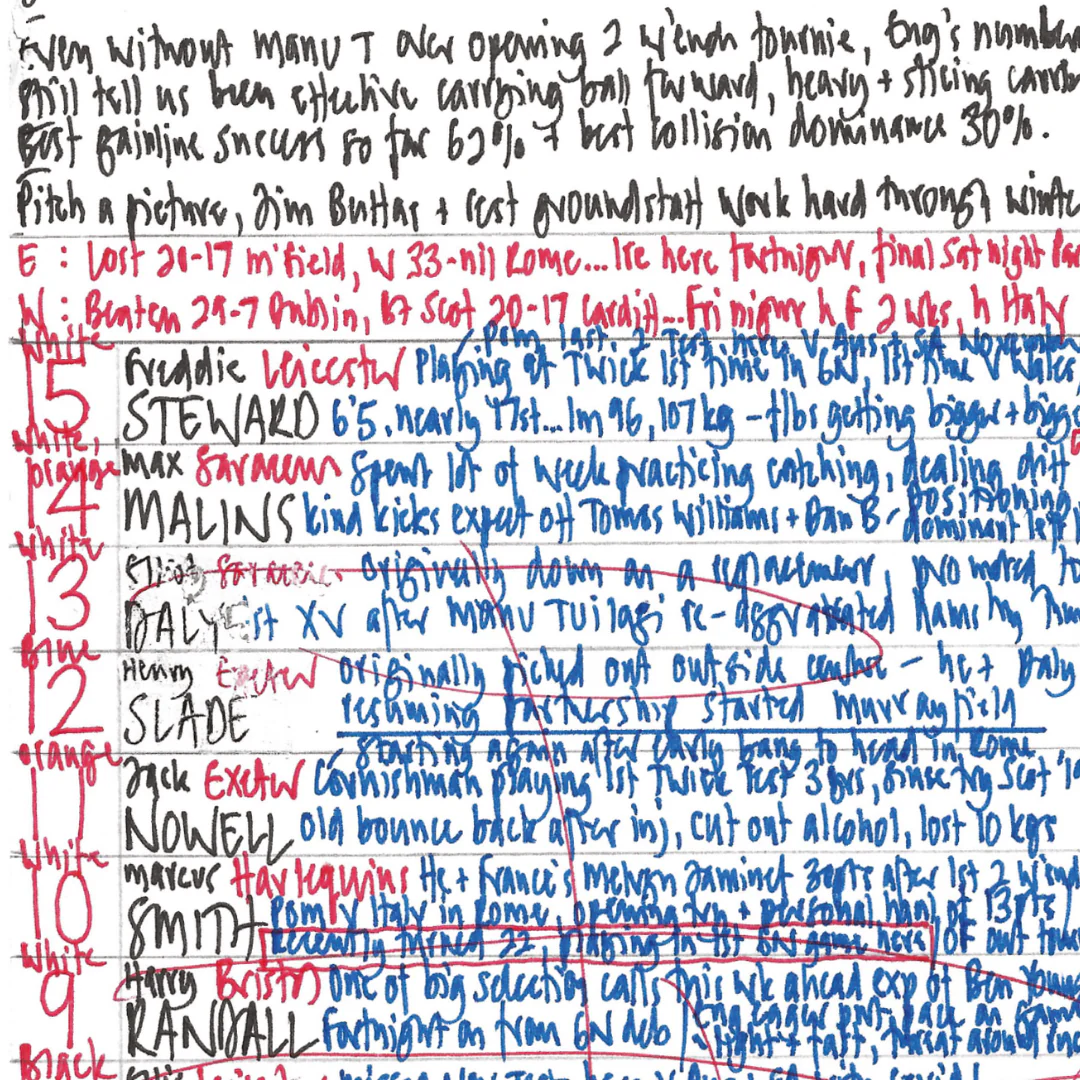 Even without Manu T over opening 2 w'ends tournie, Eng's number
still tell us been effective carrying ball forward, heavy + slicing carri
Best gainline success so far 62% + best collision dominance 30%.
Pitch a picture, Jim Buttar + rest groundstaff work hard through winte
E : Lost 20-17 m'field, W 33-nil Rome... Ire here fortnight, final sat night Par
W : Beaten 29-7 Dublin, Bt Scot 20-17 Cardiff... Fri night h F 2 wks, h Italy
White
15 Freddie Leicester POM last 2 Tests here v Aus + SA November
Playing at Twick 1st time in 6N, 1st time v Wales,
STEWARD 6'5, nearly 17st... 1m96, 107kg - f/bs getting bigger + bigg
White, orange
14 Max Saracens Spent lot of week practicing catching, dealing drift
MALINS kind kicks expect off Tomas Williams + Dan B - positioning
dominant left
White
13 Elliot Saracens originally down as a replacement, promoted to
DALY 1st XV after Manu Tuilagi re-aggravated hamstring
Blue
12 Henry Exeter originally picked out outside centre - he + Daly
SLADE resuming partnership started Murrayfield
Orange
11 starting again after early bang to head in Rome
Jack Exeter Cornishman playing 1st Twick Test 3yrs, since try Scot '19
NOWELL old bounce back after inj, cut out alcohol, lost 10 kgs
White
10 Marcus Harlequins He + France's Melvyn Jaminet 30pts after 1st 2 w'end
SMITH POM v Italy in Rome, opening try + personal haul of 13pts
Recently turned 22, playing in 1st 6Ns game here of out
White
9 Harry Bristol one of big selection calls this wk ahead exp of Ben Youn
RANDALL Fortnight on from 6N deb Eng eager put pace on game
light + fast, threat around
Black